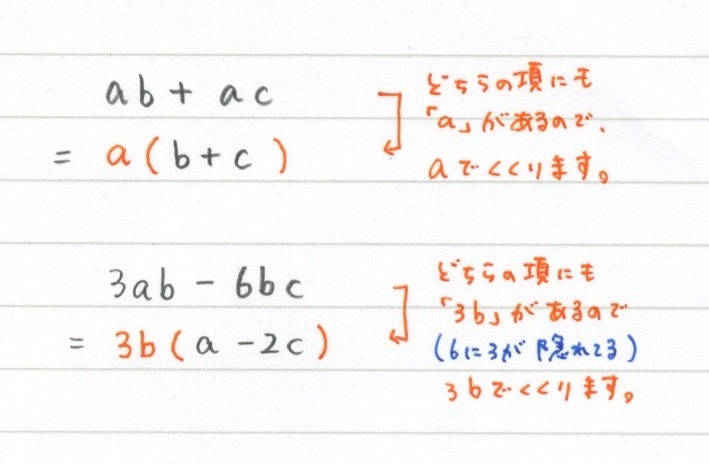 ab + ac
= a(b+c)
どちらの項にも
「a」があるので、
aでくくります。
3ab - 6bc
= 3b(a-2c)
どちらの項にも
「3b」があるので
(6に3が隠れてる)
3bでくくります。